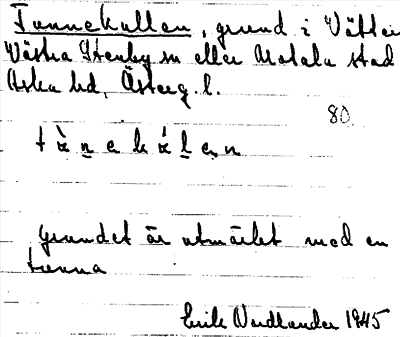 Tunnekullen, grund i Vätter
Västra Stenby sn eller Motala stad
Aska hd, Österg. l.
80.
grundet är utmärkt med en
tunna
Erik Nordlander 1945